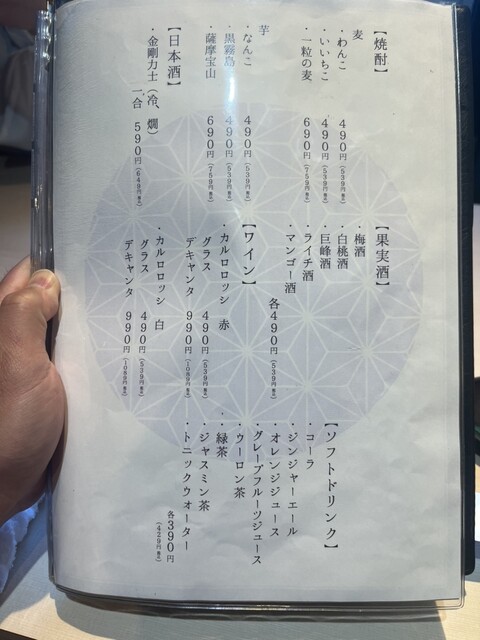 【焼酎】
麦
・わんこ 490円(539円税込)
・いいちこ 490円(539円税込)
・一粒の麦 690円(759円税込)
芋
・なんこ 490円(539円税込)
・黒霧島 490円(539円税込)
・薩摩宝山 690円(759円税込)
【日本酒】
・金剛力士(冷、燗)
一合 590円(649円税込)
【果実酒】
・梅酒
・白桃酒
・巨峰酒
・ライチ酒
・マンゴー酒
各490円(539円税込)
【ワイン】
・カルロロッシ 赤
グラス 490円(539円税込)
デキャンタ 990円(1089円税込)
・カルロロッシ 白
グラス 490円(539円税込)
デキャンタ 990円(1089円税込)
【ソフトドリンク】
・コーラ
・ジンジャーエール
・オレンジジュース
・グレープフルーツジュース
・ウーロン茶
・緑茶
・ジャスミン茶
・トニックウォーター
各390円
(429円税込)